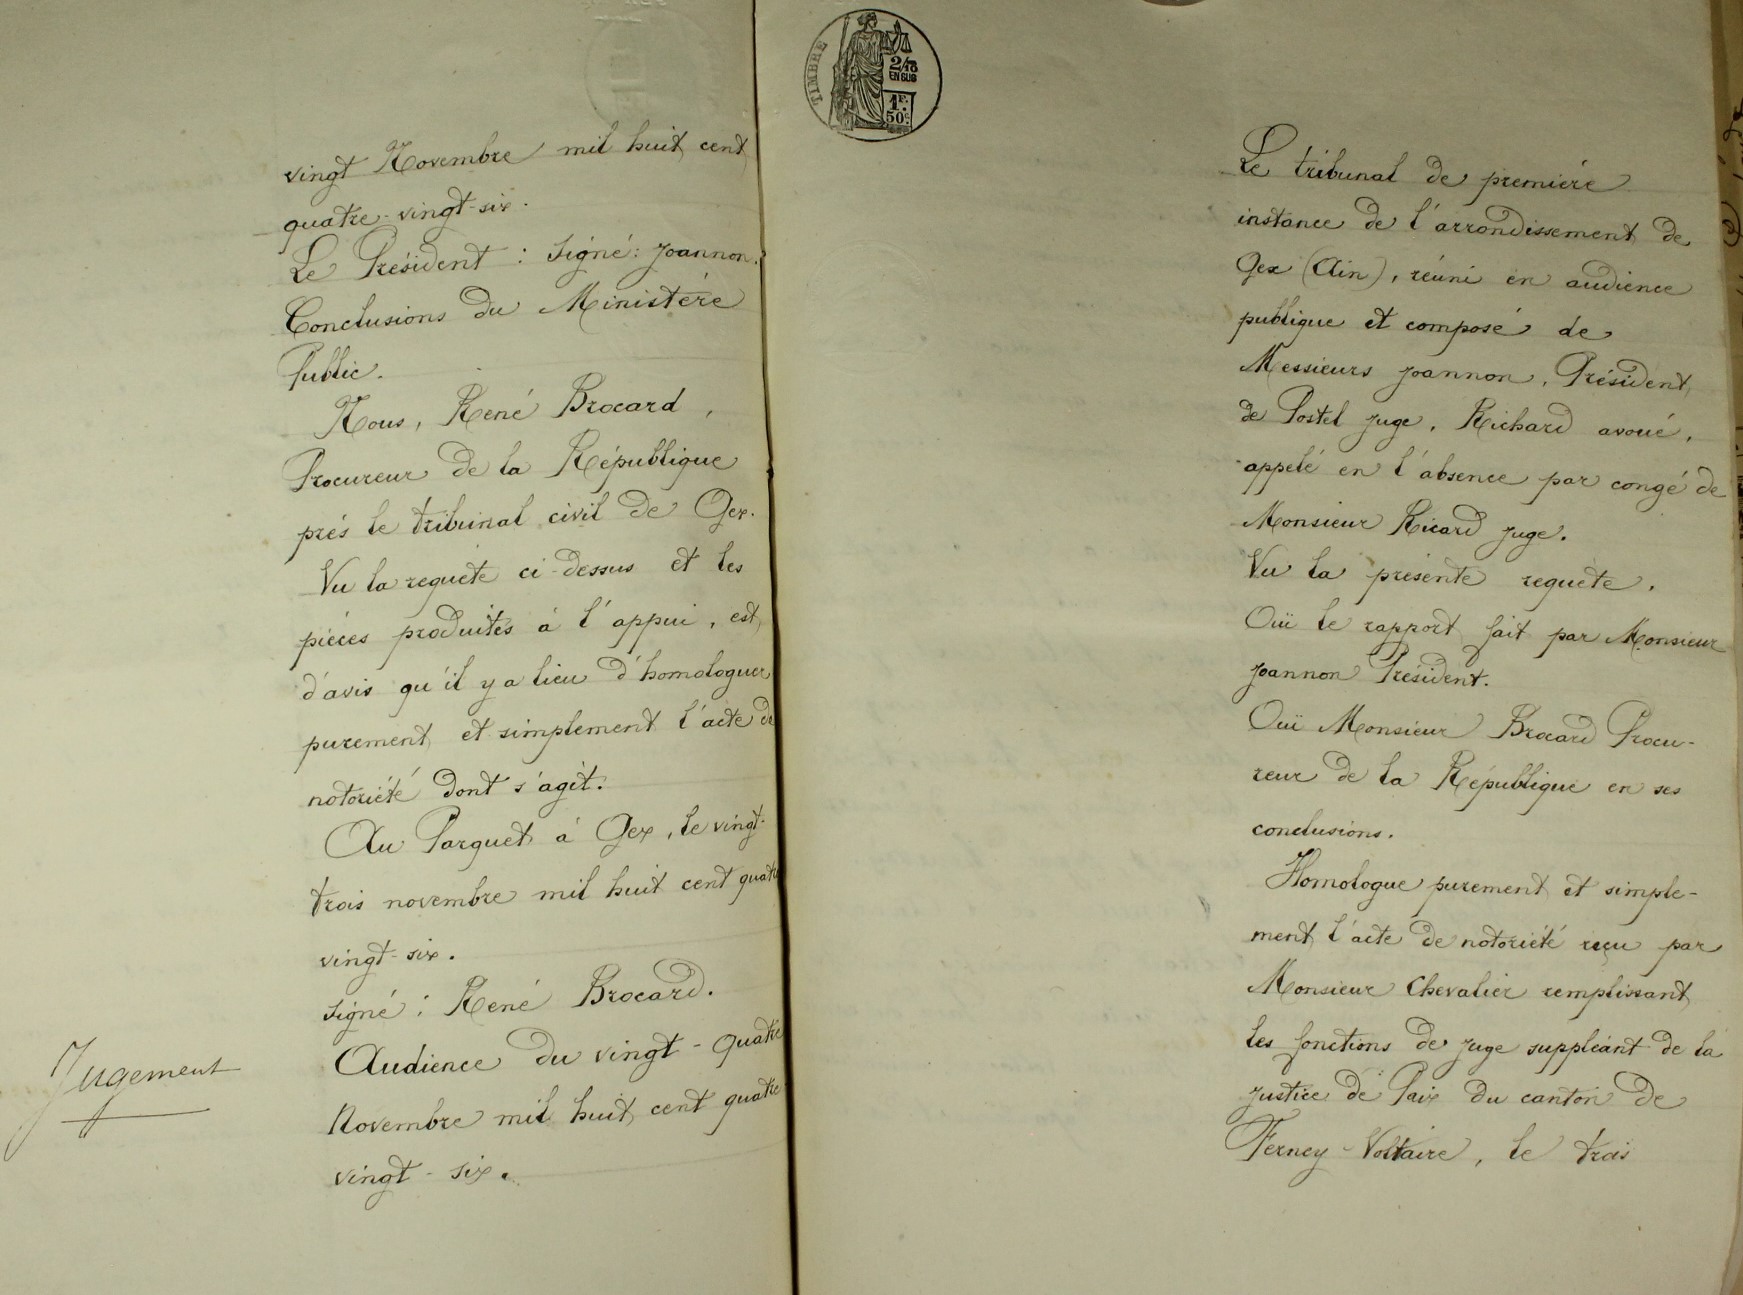 vingt Novembre mil huit cent
quatre-vingt-six.
Le Président : signé : Joannon.
Conclusions du Ministère
Public.
Nous, René Brocard,
Procureur de la République
près le tribunal civil de Gex.
Vu la requête ci-dessus et les
pièces produites à l'appui, est
d'avis qu'il y a lieu d'homologuer
purement et simplement l'acte de
notoriété dont s'agit.
Au Parquet à Gex, le vingt-
trois novembre mil huit cent quatre
vingt-six.
signé : René Brocard.
Jugement
Audience du vingt-quatre
Novembre mil huit cent quatre-
vingt-six.
TIMBRE
2/10
EN SUS
1F.
50c.
Le tribunal de première
instance de l'arrondissement de
Gex (Ain), réuni en audience
publique et composé de
Messieurs Joannon, Président,
de Postel juge, Richard avoué,
appelé en l'absence par congé de
Monsieur Ricard juge.
Vu la présente requête.
Ouï le rapport fait par Monsieur
Joannon Président.
Ouï Monsieur Brocard Procu-
reur de la République en ses
conclusions.
Homologue purement et simple-
ment l'acte de notoriété reçu par
Monsieur Chevalier remplissant
les fonctions de juge suppléant de la
justice de Paix du canton de
Ferney-Voltaire, le trois